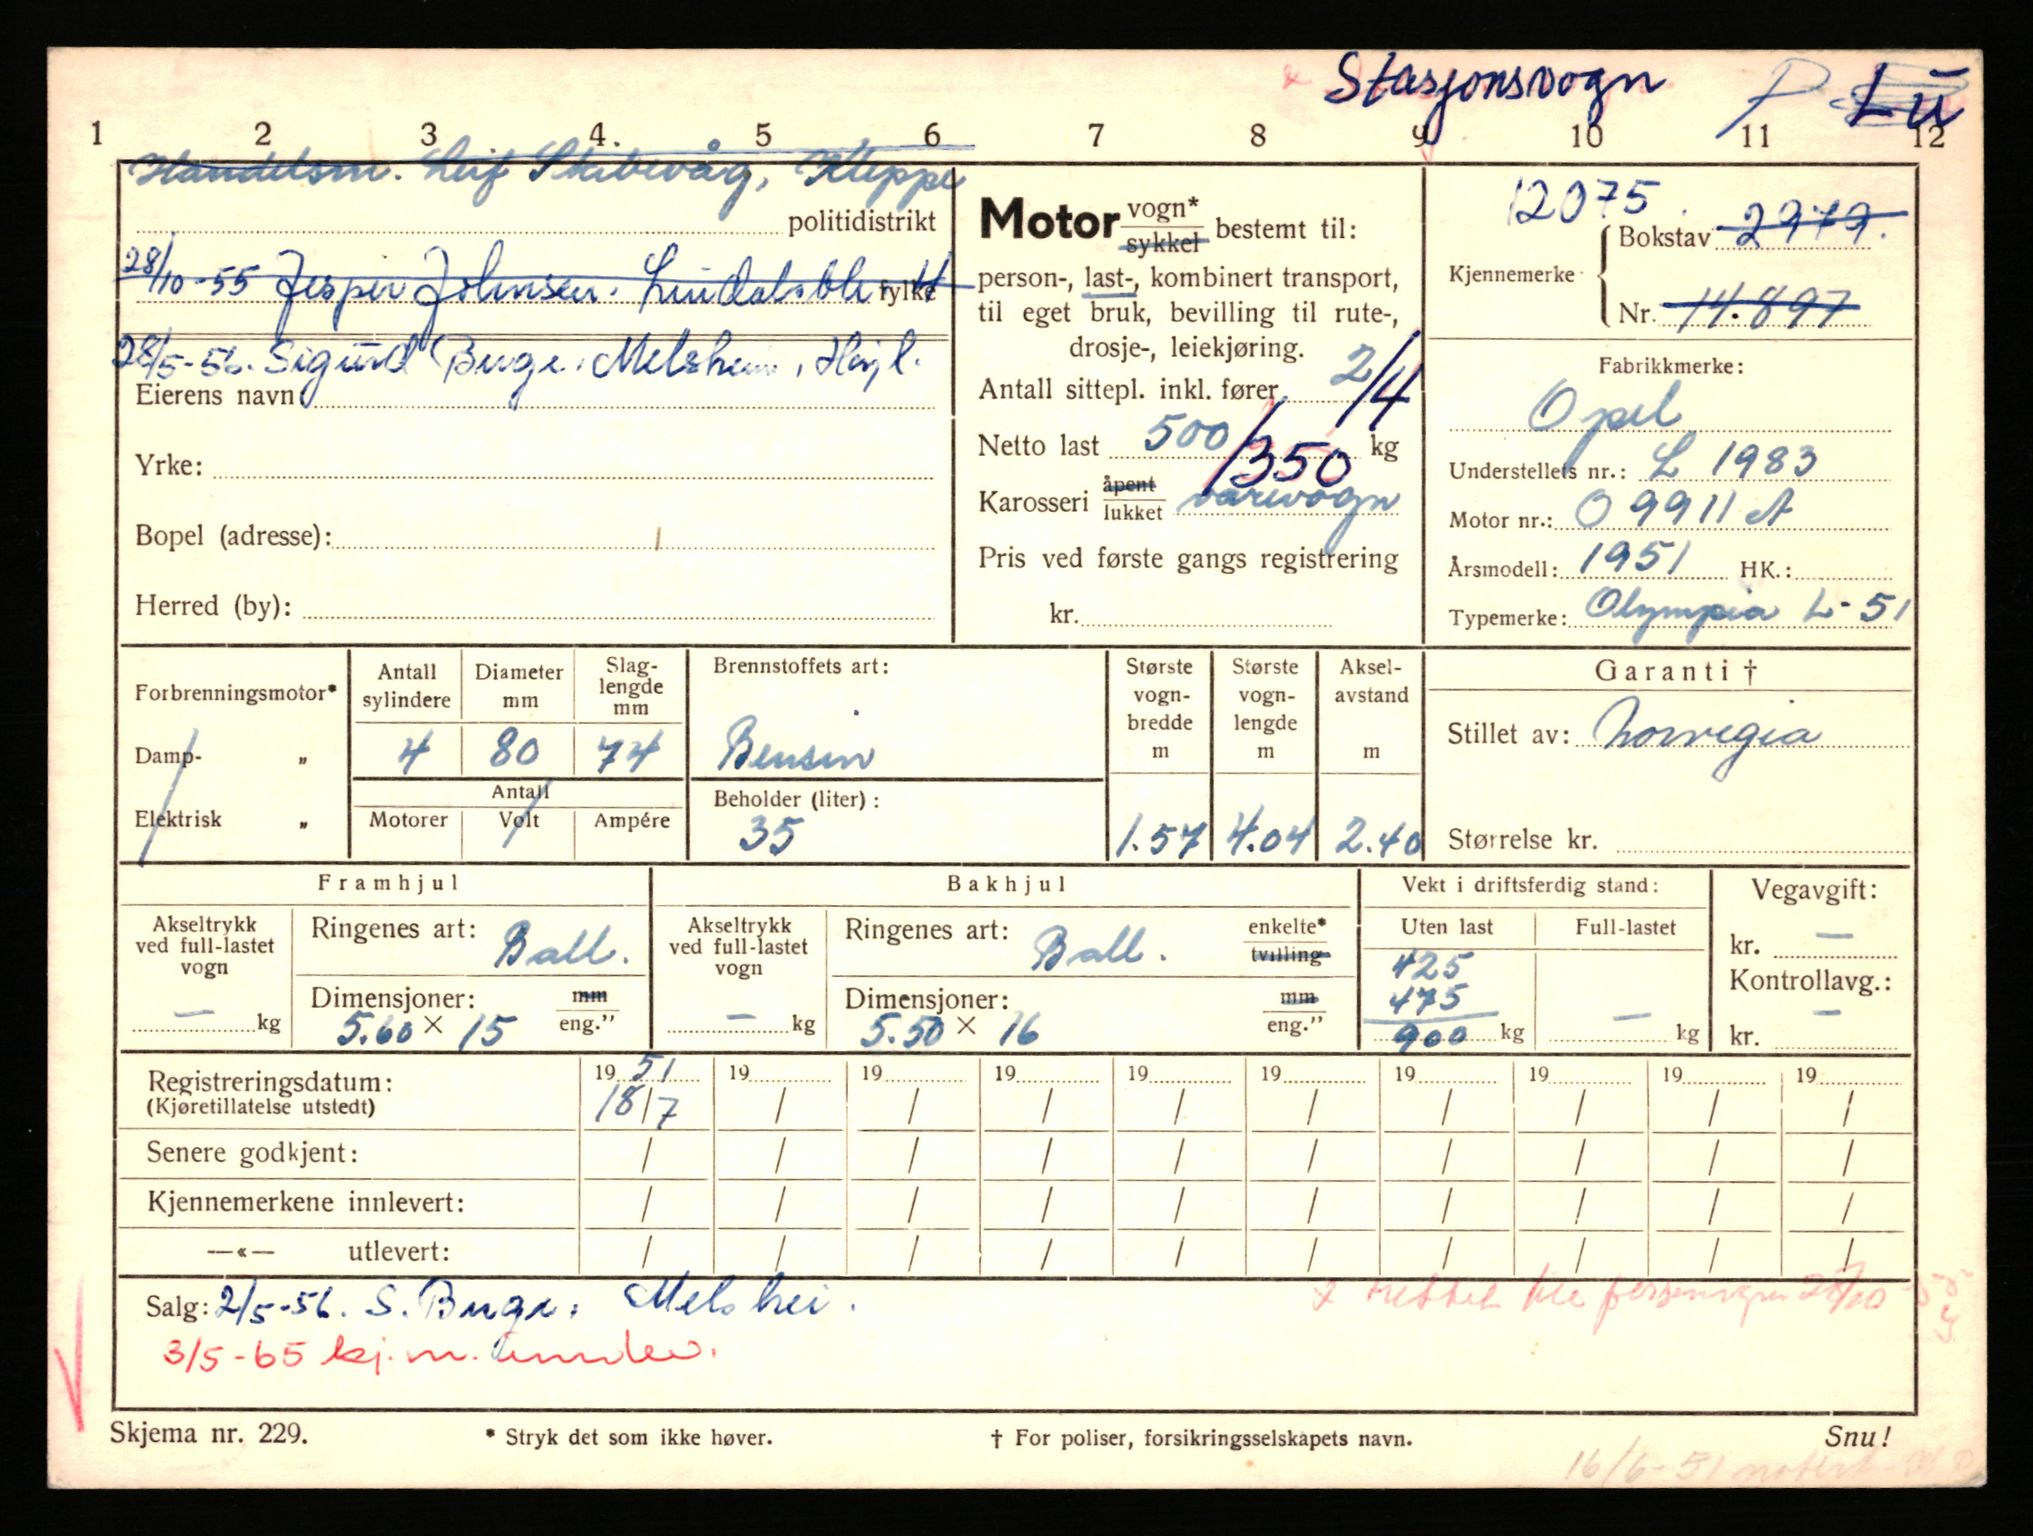 Stasjonsvogn P Lu
1 2 3 4 5 6 7 8 9 10 11 12
Handelsm. Leif Skibevåg, Kleppe
politidistrikt
28/10-55 Jesper Johnsen. fylke
28/5-56. Sigurd Buge, Melsheim, Høyl.
Eierens navn
Yrke:
Bopel (adresse):
Herred (by):
Motor vogn* sykkel bestemt til:
person-, last-, kombinert transport,
til eget bruk, bevilling til rute-,
drosje-, leiekjøring.
Antall sittepl. inkl. fører 2/4
Netto last 500/350 kg
Karosseri åpent lukket varevogn
Pris ved første gangs registrering
kr.
12075
Kjennemerke Bokstav 2979.
Nr. 14.897
Fabrikkmerke:
Opel
Understellets nr.: L 1983
Motor nr.: O 9911 A
Årsmodell: 1951 HK.:
Typemerke: Olympia L-51
Forbrenningsmotor*
Damp- „
Elektrisk „
Antall sylindere Diameter mm Slag-lengde mm
4 80 74
Antall
Motorer Volt Ampére
Brennstoffets art:
Bensin
Beholder (liter):
35
Største vogn-bredde m Største vogn-lengde m Aksel-avstand m
1.57 4.04 2.40
Garanti †
Stillet av: Norvegia
Størrelse kr.
Framhjul
Akseltrykk ved full-lastet vogn
— kg
Ringenes art: Ball.
Dimensjoner: mm
5.60 × 15 eng.”
Bakhjul
Akseltrykk ved full-lastet vogn
— kg
Ringenes art: Ball. enkelte* tvilling
Dimensjoner: mm
5.50 × 16 eng.”
Vekt i driftsferdig stand:
Uten last Full-lastet
425
475
900 kg — kg
Vegavgift:
kr. —
Kontrollavg.:
kr. —
Registreringsdatum: 19 51 19 19 19 19 19 19 19 19 19
(Kjøretillatelse utstedt) 18/7 / / / / / / / / /
Senere godkjent: / / / / / / / / / /
Kjennemerkene innlevert: / / / / / / / / / /
—«— utlevert: / / / / / / / / / /
Salg: 2/5-56. S. Buge, Melshei.
3/5-65 kj.m. innlev.
Skjema nr. 229. * Stryk det som ikke høver. † For poliser, forsikringsselskapets navn. Snu!
16/6-51